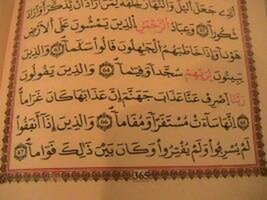 الَّذِي جَعَلَ الَّيْلَ وَالنَّهَارَ خِلْفَةً لِّمَنْ أَرَادَ أَن يَذَّكَّرَ أَوْ أَرَادَ
شُكُورًا ۝٦٢ وَعِبَادُ الرَّحْمَٰنِ الَّذِينَ يَمْشُونَ عَلَى الْأَرْضِ
هَوْنًا وَإِذَا خَاطَبَهُمُ الْجَٰهِلُونَ قَالُوا سَلَٰمًا ۝٦٣ وَالَّذِينَ
يَبِيتُونَ لِرَبِّهِمْ سُجَّدًا وَقِيَٰمًا ۝٦٤ وَالَّذِينَ يَقُولُونَ
رَبَّنَا اصْرِفْ عَنَّا عَذَابَ جَهَنَّمَ إِنَّ عَذَابَهَا كَانَ غَرَامًا
۝٦٥ إِنَّهَا سَاءَتْ مُسْتَقَرًّا وَمُقَامًا ۝٦٦ وَالَّذِينَ إِذَا أَنفَقُوا
لَمْ يُسْرِفُوا وَلَمْ يَقْتُرُوا وَكَانَ بَيْنَ ذَٰلِكَ قَوَامًا ۝٦٧
365